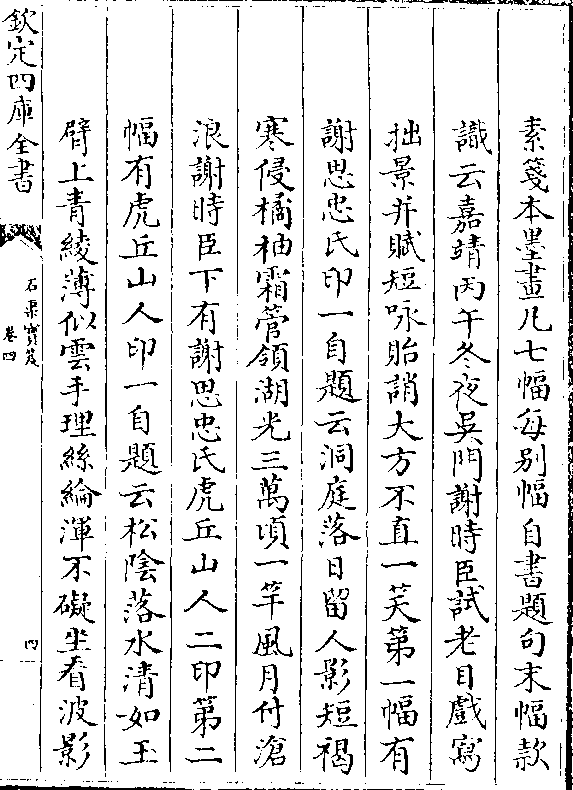 素箋本墨畫凡七幅每别幅自書題句末幅款
識云嘉靖丙午冬夜吳門謝時臣試老目戲寫
拙景并賦短咏貽誚大方不直一笑第一幅有
謝思忠氏印一自題云洞庭落日留人影短褐
寒侵橘柚霜管領湖光三萬頃一竿風月付滄
浪謝時臣下有謝思忠氏虎丘山人二印第二
幅有虎丘山人印一自題云松陰落水清如玉
臂上青綾薄似雲手理絲綸渾不礙坐看波影
欽定四庫全書
石渠寳笈
卷四
四